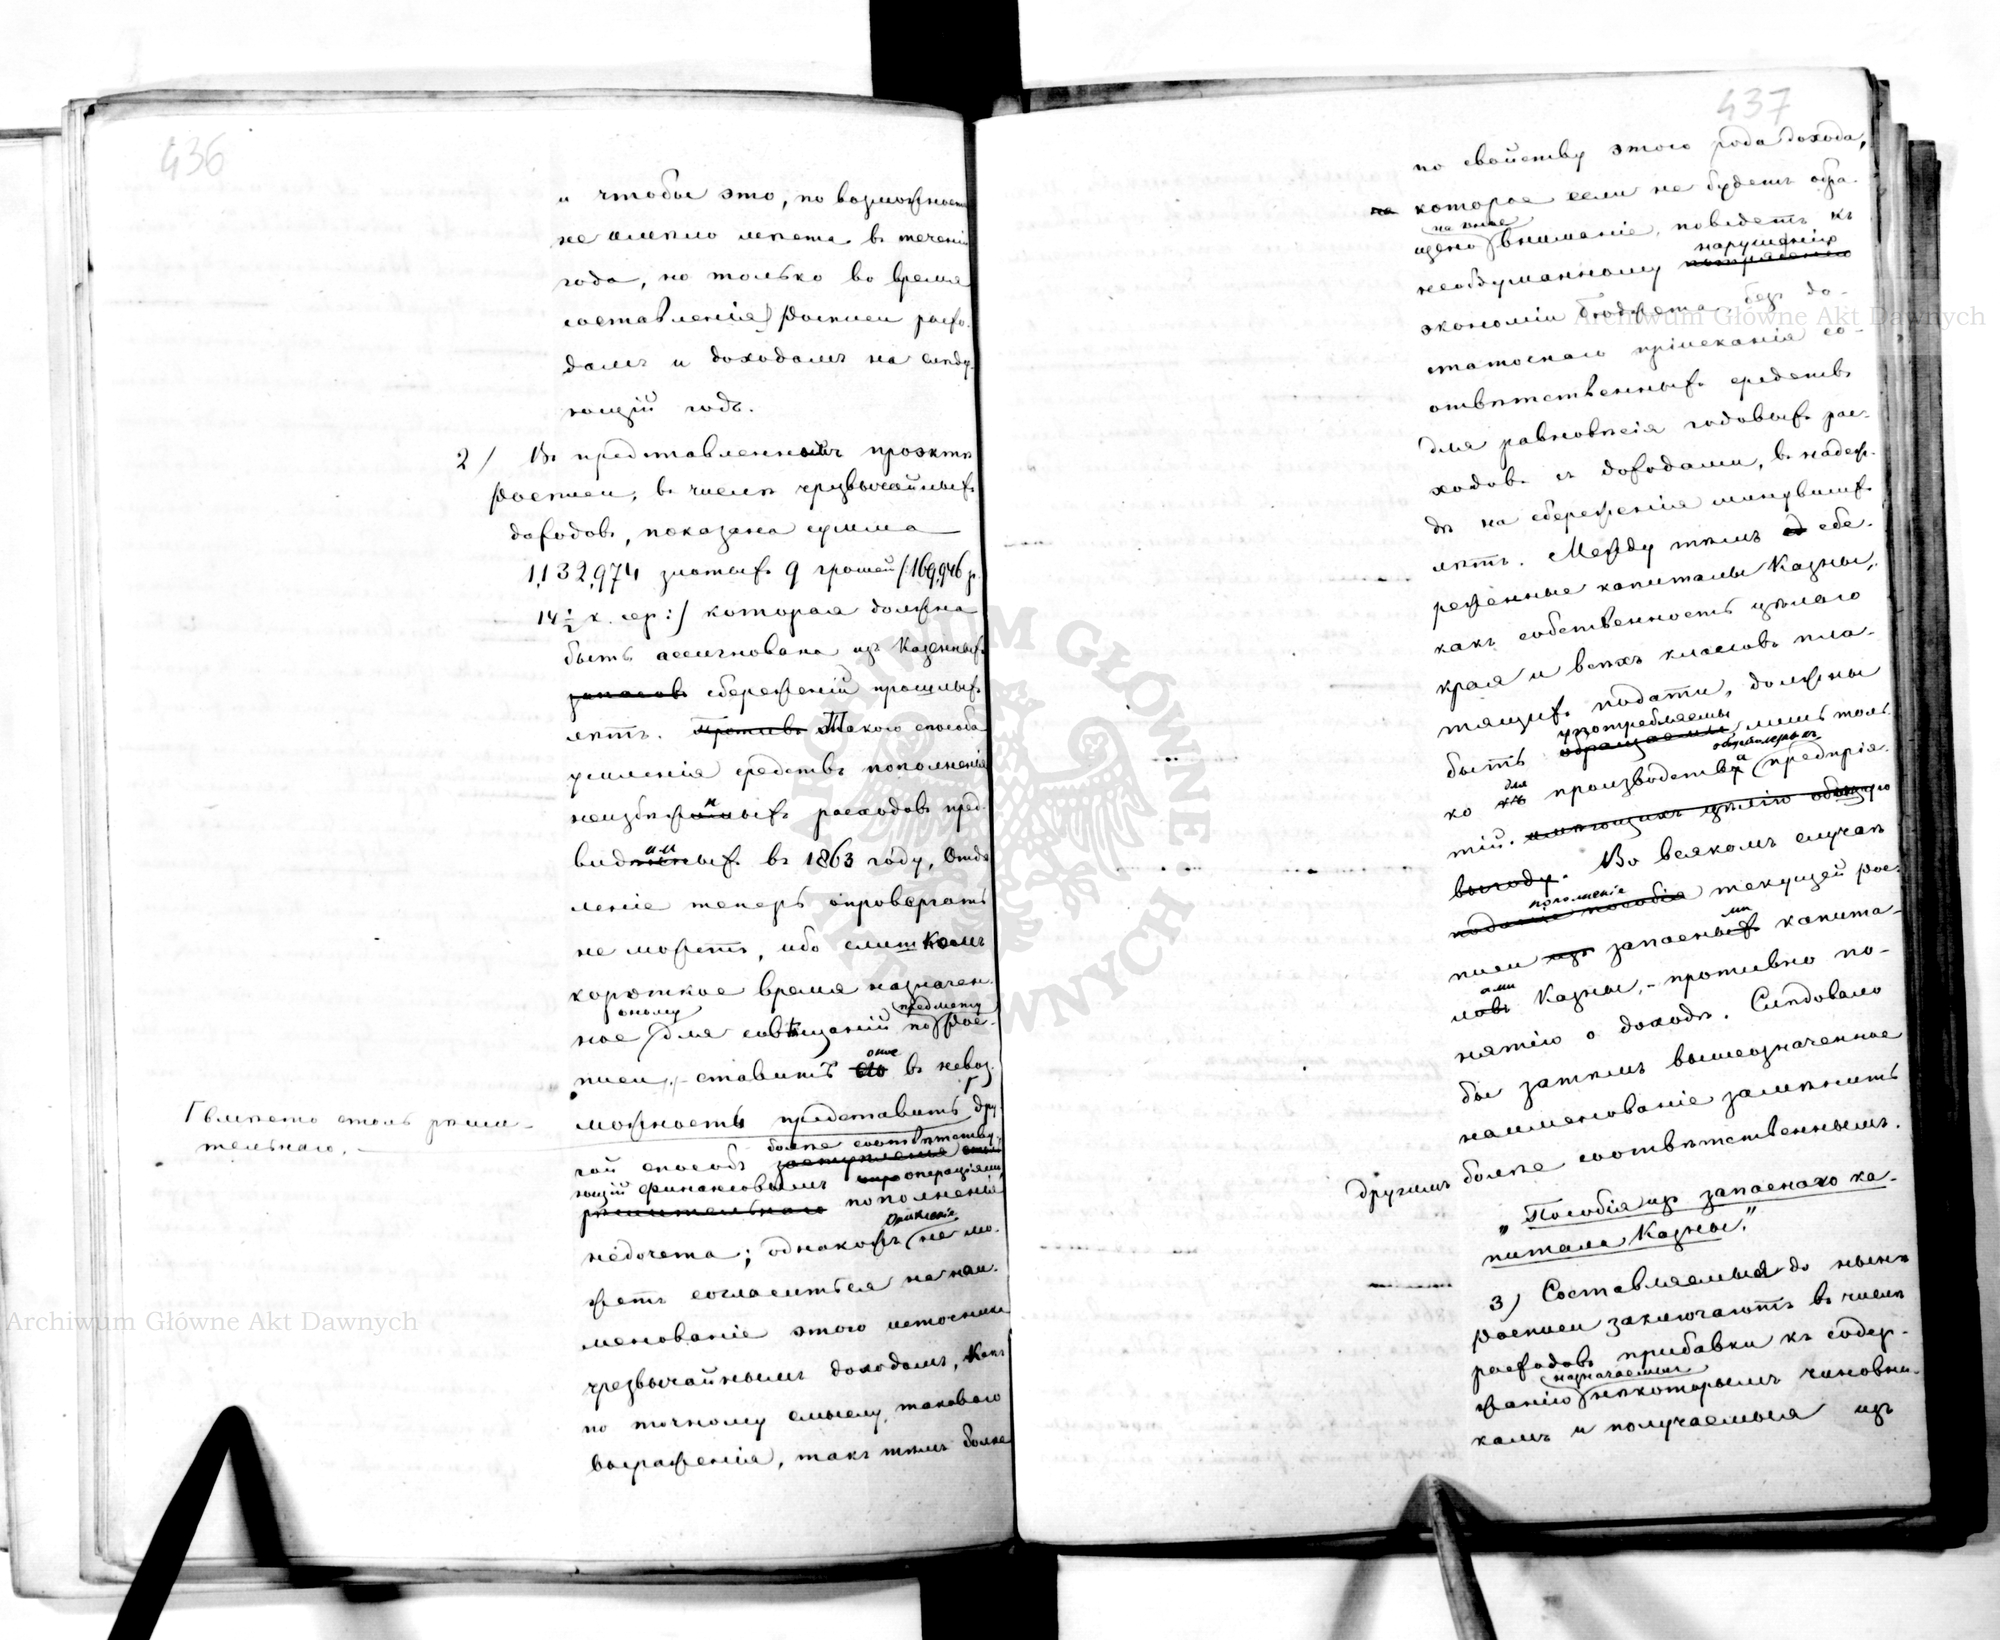 436
и чтобы это, по возможности
не имѣло мѣста въ теченіи
года, но только во время
составленія росписи расхо-
дамъ и доходамъ на слѣду-
ющій годъ.
2/ Въ представленномъ проэктѣ
росписи, въ числѣ чрезвычайныхъ
доходовъ, показана сумма
1,132,974 злотыхъ 9 грошей /:169,946 р.
14 1/2 к. сер:/ которая должна
быть ассигнована изъ Казенныхъ
запасовъ сбереженій прошлыхъ
лѣтъ. Противъ Такого способа
усиленія средствъ пополненія
неизбѣжныхъ расходовъ пред-
видимыхъ въ 1863 году, Отдѣ
леніе теперь опровергать
не можетъ, ибо слишкомъ
короткое время назначен-
оному предмету
ное для совѣщаній по рос-
оное
писи, ставитъ его въ невоз-
Г вмѣсто столь рѣши-
тельнаго.
можность представить дру-
болѣе соотвѣтству-
гой способъ
ющій финансовымъ операціямъ
рѣшительнаго пополненія
Отдѣленіе
недочета; однакожъ не мо-
жетъ согласиться на наи-
менованіе этого источника
чрезвычайнымъ доходомъ, какъ
по точному смыслу таковаго
выраженія, такъ тѣмъ болѣе
437
по свойству этого рода дохода,
на которое если не будетъ обра-
щено вниманіе, поведетъ къ
нарушенію
необдуманному
экономіи бюджета, безъ до-
статочнаго пріисканія со-
отвѣтственныхъ средствъ
для равновѣсія годовыхъ рас-
ходовъ съ доходами, въ надеж-
дѣ на сбереженія минувшихъ
лѣтъ. Между тѣмъ сбе-
реженные капиталы Казны,
какъ собственность цѣлаго
края и всѣхъ классовъ пла-
тящихъ подати, должны
употребляемы
быть обращаемы, лишь толь-
ко для производства предпрія-
тій. имѣющихъ цѣлію общую
выгоду. Во всякомъ случаѣ
пополненіе
подобіе пособія текущей рос-
писи изъ запасныхъ капита-
ами
ловъ Казны, - противно по-
нятію о доходѣ. Слѣдовало
бы затѣмъ вышеозначенное
наименованіе замѣнить
другимъ болѣе соотвѣтственнымъ.
"Пособія изъ запаснаго ка-
питала Казны."
3) Составляемыя до нынѣ
росписи заключаютъ въ числѣ
расходовъ прибавки къ содер-
назначаемыя
жанію нѣкоторымъ чиновни-
камъ и получаемыя изъ
Archiwum Główne Akt Dawnych
Archiwum Główne Akt Dawnych
ARCHIWUM GŁÓWNE AKT DAWNYCH